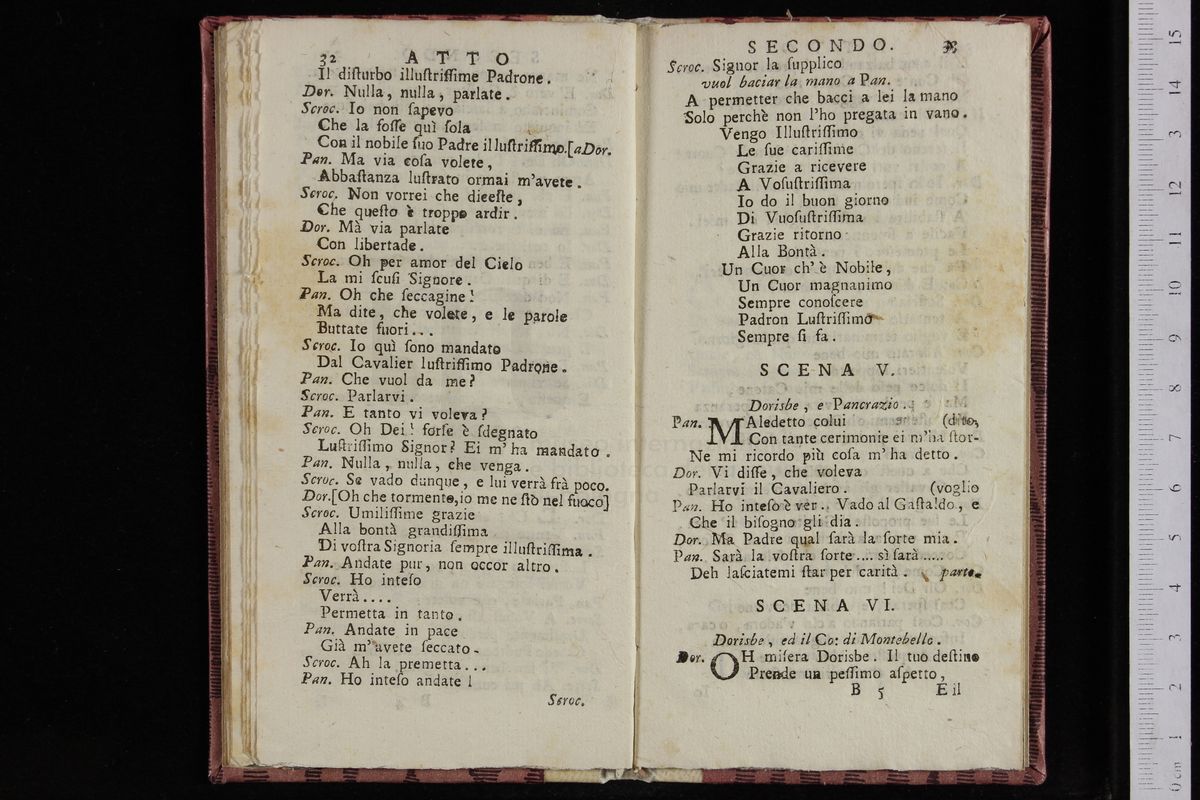 32 ATTO
Il diſturbo illuſtriſſime Padrone.
Dor. Nulla, nulla, parlate.
Scroc. Io non ſapevo
Che la foſſe quì ſola
Con il nobile ſuo Padre illuſtriſſimo.[a Dor.
Pan. Ma via coſa volete,
Abbaſtanza luſtrato ormai m'avete.
Scroc. Non vorrei che diceſte,
Che queſto è troppo ardir.
Dor. Mà via parlate
Con libertade.
Scroc. Oh per amor del Cielo
La mi ſcuſi Signore.
Pan. Oh che ſeccagine!
Ma dite, che volete, e le parole
Buttate fuori...
Scroc. Io quì ſono mandato
Dal Cavalier luſtriſſimo Padrone.
Pan. Che vuol da me?
Scroc. Parlarvi.
Pan. E tanto vi voleva?
Scroc. Oh Dei! forſe è ſdegnato
Luſtriſſimo Signor? Ei m'ha mandato.
Pan. Nulla, nulla, che venga.
Scroc. Se vado dunque, e lui verrà frà poco.
Dor.[Oh che tormento,io me ne ſtò nel fuoco]
Scroc. Umiliſſime grazie
Alla bontà grandiſſima
Di voſtra Signoria ſempre illuſtriſſima.
Pan. Andate pur, non occor altro.
Scroc. Ho inteſo
Verrà....
Permetta in tanto.
Pan. Andate in pace
Già m'avete ſeccato.
Scroc. Ah la premetta...
Pan. Ho inteſo andate!
Scroc.
SECONDO.
Scroc. Signor la ſupplico
vuol baciar la mano a Pan.
A permetter che bacci a lei la mano
Solo perchè non l'ho pregata in vano.
Vengo Illuſtriſſimo
Le ſue cariſſime
Grazie a ricevere
A Voſuſtriſſima
Io do il buon giorno
Di Vuoſuſtriſſima
Grazie ritorno
Alla Bontà.
Un Cuor ch'è Nobile,
Un Cuor magnanimo
Sempre conoſcere
Padron Luſtriſſimo
Sempre ſi fa.
SCENA V.
Dorisbe, e Pancrazio.
Pan. MAledetto colui (dito,
Con tante cerimonie ei m'ha ſtor-
Ne mi ricordo più coſa m'ha detto.
Dor. Vi diſſe, che voleva
Parlarvi il Cavaliero. (voglio
Pan. Ho inteſo è ver.. Vado al Gaſtaldo, e
Che il biſogno gli dia.
Dor. Ma Padre qual ſarà la ſorte mia.
Pan. Sarà la voſtra ſorte.... sì ſarà.....
Deh laſciatemi ſtar per carità. parte.
SCENA VI.
Dorisbe, ed il Co: di Montebello.
Dor. OH miſera Dorisbe. Il tuo deſtino
Prende un peſſimo aſpetto,
B 5 E il
15
14
13
12
11
10
9
8
7
6
5
4
3
2
1
0 cm